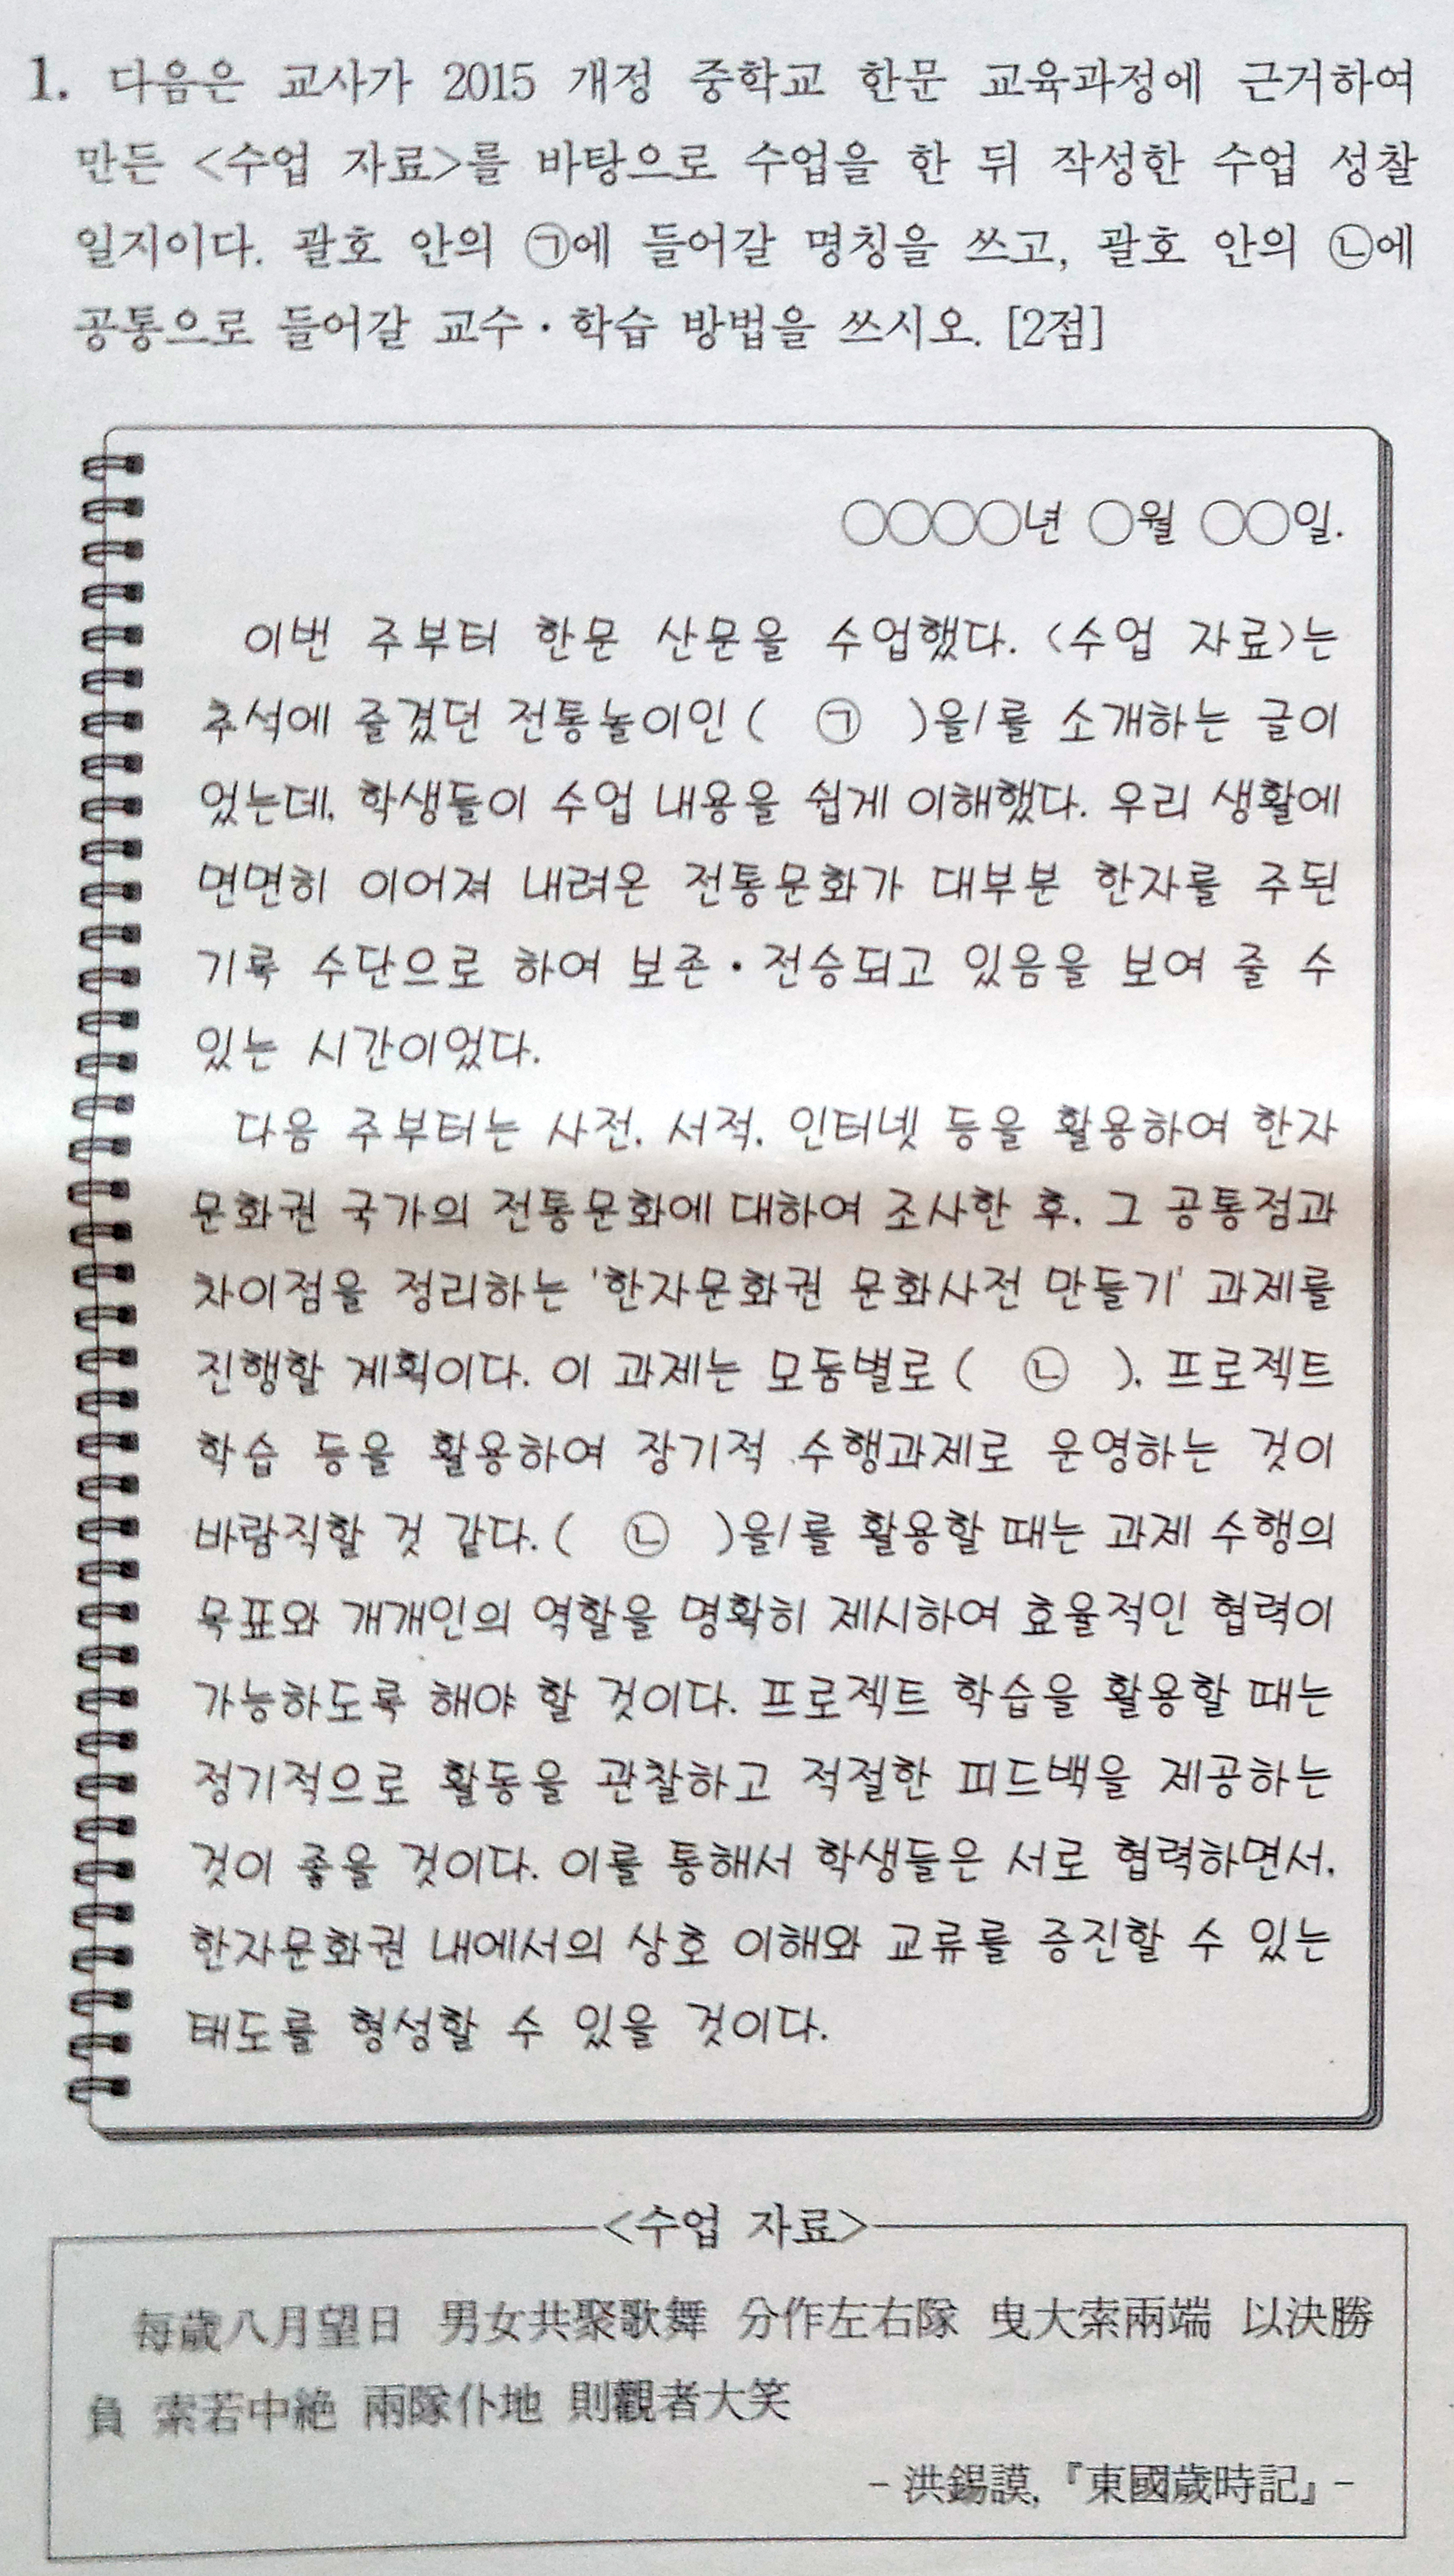 1. 다음은 교사가 2015 개정 중학교 한문 교육과정에 근거하여
만든 <수업 자료>를 바탕으로 수업을 한 뒤 작성한 수업 성찰
일지이다. 괄호 안의 ㉠에 들어갈 명칭을 쓰고, 괄호 안의 ㉡에
공통으로 들어갈 교수·학습 방법을 쓰시오. [2점]
○○○○년 ○월 ○○일.
이번 주부터 한문 산문을 수업했다. <수업 자료>는
추석에 즐겼던 전통놀이인 ( ㉠ )을/를 소개하는 글이
었는데, 학생들이 수업 내용을 쉽게 이해했다. 우리 생활에
면면히 이어져 내려온 전통문화가 대부분 한자를 주된
기록 수단으로 하여 보존·전승되고 있음을 보여 줄 수
있는 시간이었다.
다음 주부터는 사전, 서적, 인터넷 등을 활용하여 한자
문화권 국가의 전통문화에 대하여 조사한 후, 그 공통점과
차이점을 정리하는 '한자문화권 문화사전 만들기' 과제를
진행할 계획이다. 이 과제는 모둠별로 ( ㉡ ), 프로젝트
학습 등을 활용하여 장기적 수행과제로 운영하는 것이
바람직할 것 같다. ( ㉡ )을/를 활용할 때는 과제 수행의
목표와 개개인의 역할을 명확히 제시하여 효율적인 협력이
가능하도록 해야 할 것이다. 프로젝트 학습을 활용할 때는
정기적으로 활동을 관찰하고 적절한 피드백을 제공하는
것이 좋을 것이다. 이를 통해서 학생들은 서로 협력하면서,
한자문화권 내에서의 상호 이해와 교류를 증진할 수 있는
태도를 형성할 수 있을 것이다.
<수업 자료>
每歲八月望日 男女共聚歌舞 分作左右隊 曳大索兩端 以決勝
負 索若中絶 兩隊仆地 則觀者大笑
- 洪錫謨, 『東國歲時記』 -